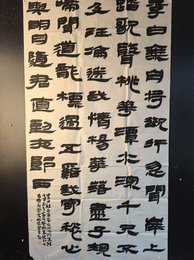 李白乘舟將行忽聞岸上
踏歌聲桃華潭水深千尺不
及汪倫送我情楊華落盡子規
啼聞道龍標過五溪我寄愁心
與明月隨君直到夜郎西